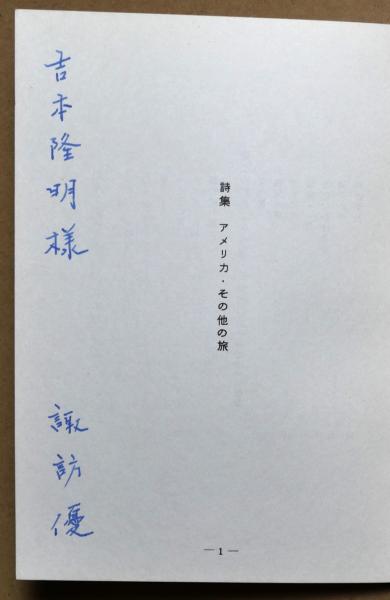 詩集 アメリカ・その他の旅
吉本隆明様
諏訪優
— 1 —